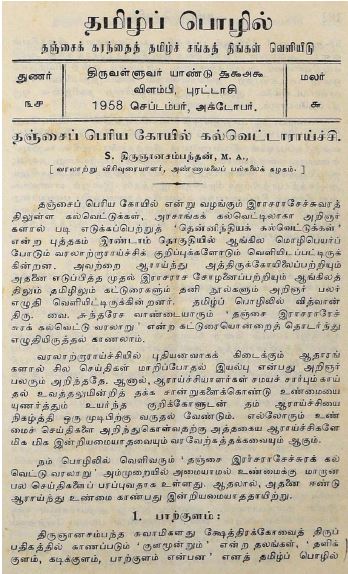 தமிழ்ப் பொழில்
தஞ்சைக் கரந்தைத் தமிழ்ச் சங்கத் திங்கள் வெளியீடு
துணர்
திருவள்ளுவர் யாண்டு
மலர்
விளம்பி, புரட்டாசி
1958 செப்டம்பர், அக்டோபர்.
தஞ்சைப் பெரிய கோயில் கல்வெட்டாராய்ச்சி.
S. திருஞானசம்பந்தன், M. A.,
[ வரலாற்று விரிவுரையாளர், அண்ணாமலைப் பல்கலைக் கழகம். ]
தஞ்சைப் பெரிய கோயில் என்று வழங்கும் இராசராசேச்சுவரத்
திலுள்ள கல்வெட்டுக்கள், அரசாங்கக் கல்வெட்டிலாகா அறிஞர்
களால் படி எடுக்கப்பெற்றுத் 'தென்னிந்தியக் கல்வெட்டுக்கள்'
என்ற புத்தகம் இரண்டாம் தொகுதியில் ஆங்கில மொழிபெயர்ப்
போடும் வரலாற்றாராய்ச்சிக் குறிப்புக்களோடும் வெளியிடப்பட்டிருக்
கின்றன. அவற்றை ஆராய்ந்து அத்திருக்கோயிலைப்பற்றியும்
அதனை எடுப்பித்த முதல் இராசராச சோழனைப்பற்றியும் ஆங்கிலத்
திலும் தமிழிலும் கட்டுரைகளும் தனி நூல்களும் அறிஞர் பலர்
எழுதி வெளியிட்டிருக்கின்றனர். தமிழ்ப் பொழிலில் வித்வான்
திரு. வை. சுந்தரேச வாண்டையாரும் 'தஞ்சை இராசராசேச்
சுரக் கல்வெட்டு வரலாறு' என்ற கட்டுரையொன்றைத் தொடர்ந்து
எழுதியிருத்தல் காணலாம்.
வரலாற்றாராய்ச்சியில் புதியனவாகக் கிடைக்கும் ஆதாரங்
களால் சில செய்திகள் மாறிப்போதல் இயல்பு என்பது அறிஞர்
பலரும் அறிந்ததே. ஆனால், ஆராய்ச்சியாளர்கள் சமயச் சார்பும் காய்
தல் உவத்தலுமின்றித் தக்க சான்றுகளைக்கொண்டு உண்மையை
யுணர்த்தும் உயர்ந்த குறிக்கோளுடன் தம் ஆராய்ச்சியை
நிகழ்த்தி ஒரு முடிபிற்கு வருதல் வேண்டும். எல்லோரும் உண்
மைச் செய்திகளை அறிந்துகொள்வதற்கு அத்தகைய ஆராய்ச்சிகளே
மிக மிக இன்றியமையாதவையும் வரவேற்கத்தக்கவையும் ஆகும்.
நம் பொழிலில் வெளிவரும் 'தஞ்சை இராசராசேச்சுரக் கல்
வெட்டு வரலாறு' அம்முறையில் அமையாமல் உண்மைக்கு மாறான
பல செய்திகளைப் பரப்புவதாக உள்ளது. ஆதலால், அதனை ஈண்டு
ஆராய்ந்து உண்மை காண்பது இன்றியமையாததாயிற்று.
1. பாற்குளம் :
திருஞானசம்பந்த சுவாமிகளது க்ஷேத்திரக்கோவைத் திருப்
பதிகத்தில் காணப்படும் 'குளமூன்றும்' என்ற தலங்கள், 'தளிக்
குளம், கடிக்குளம், பாற்குளம் என்பன' எனத் தமிழ்ப் பொழில்